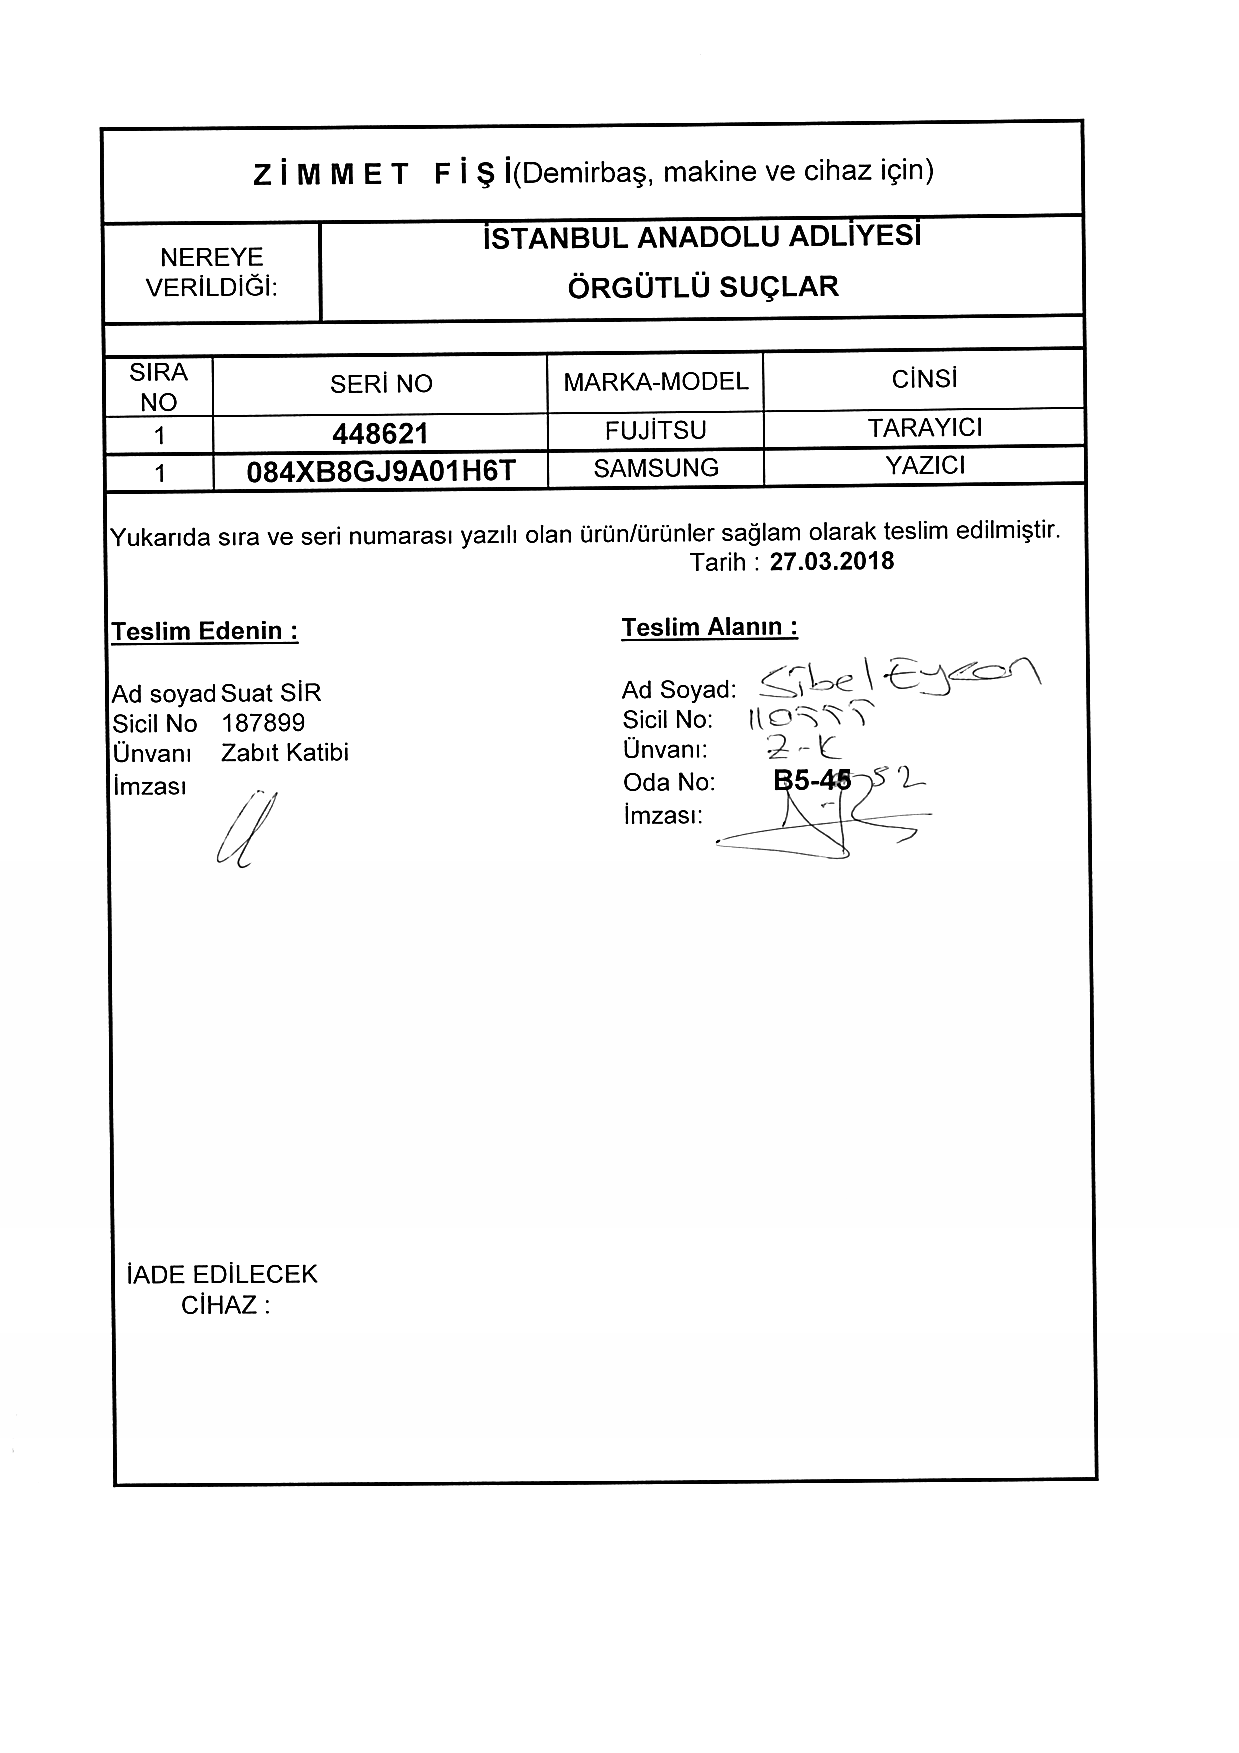 ZİMMET FİŞİ(Demirbaş, makine ve cihaz için)
NEREYE VERİLDİĞİ:
İSTANBUL ANADOLU ADLİYESİ
ÖRGÜTLÜ SUÇLAR
SIRA NO SERİ NO MARKA-MODEL CİNSİ
1 448621 FUJİTSU TARAYICI
1 084XB8GJ9A01H6T SAMSUNG YAZICI
Yukarıda sıra ve seri numarası yazılı olan ürün/ürünler sağlam olarak teslim edilmiştir.
Tarih : 27.03.2018
Teslim Edenin :
Ad soyad Suat SİR
Sicil No 187899
Ünvanı Zabıt Katibi
İmzası
Teslim Alanın :
Ad Soyad: Sibel
Sicil No:
Ünvanı: Z-K
Oda No: B5-45 52
İmzası:
İADE EDİLECEK
CİHAZ :